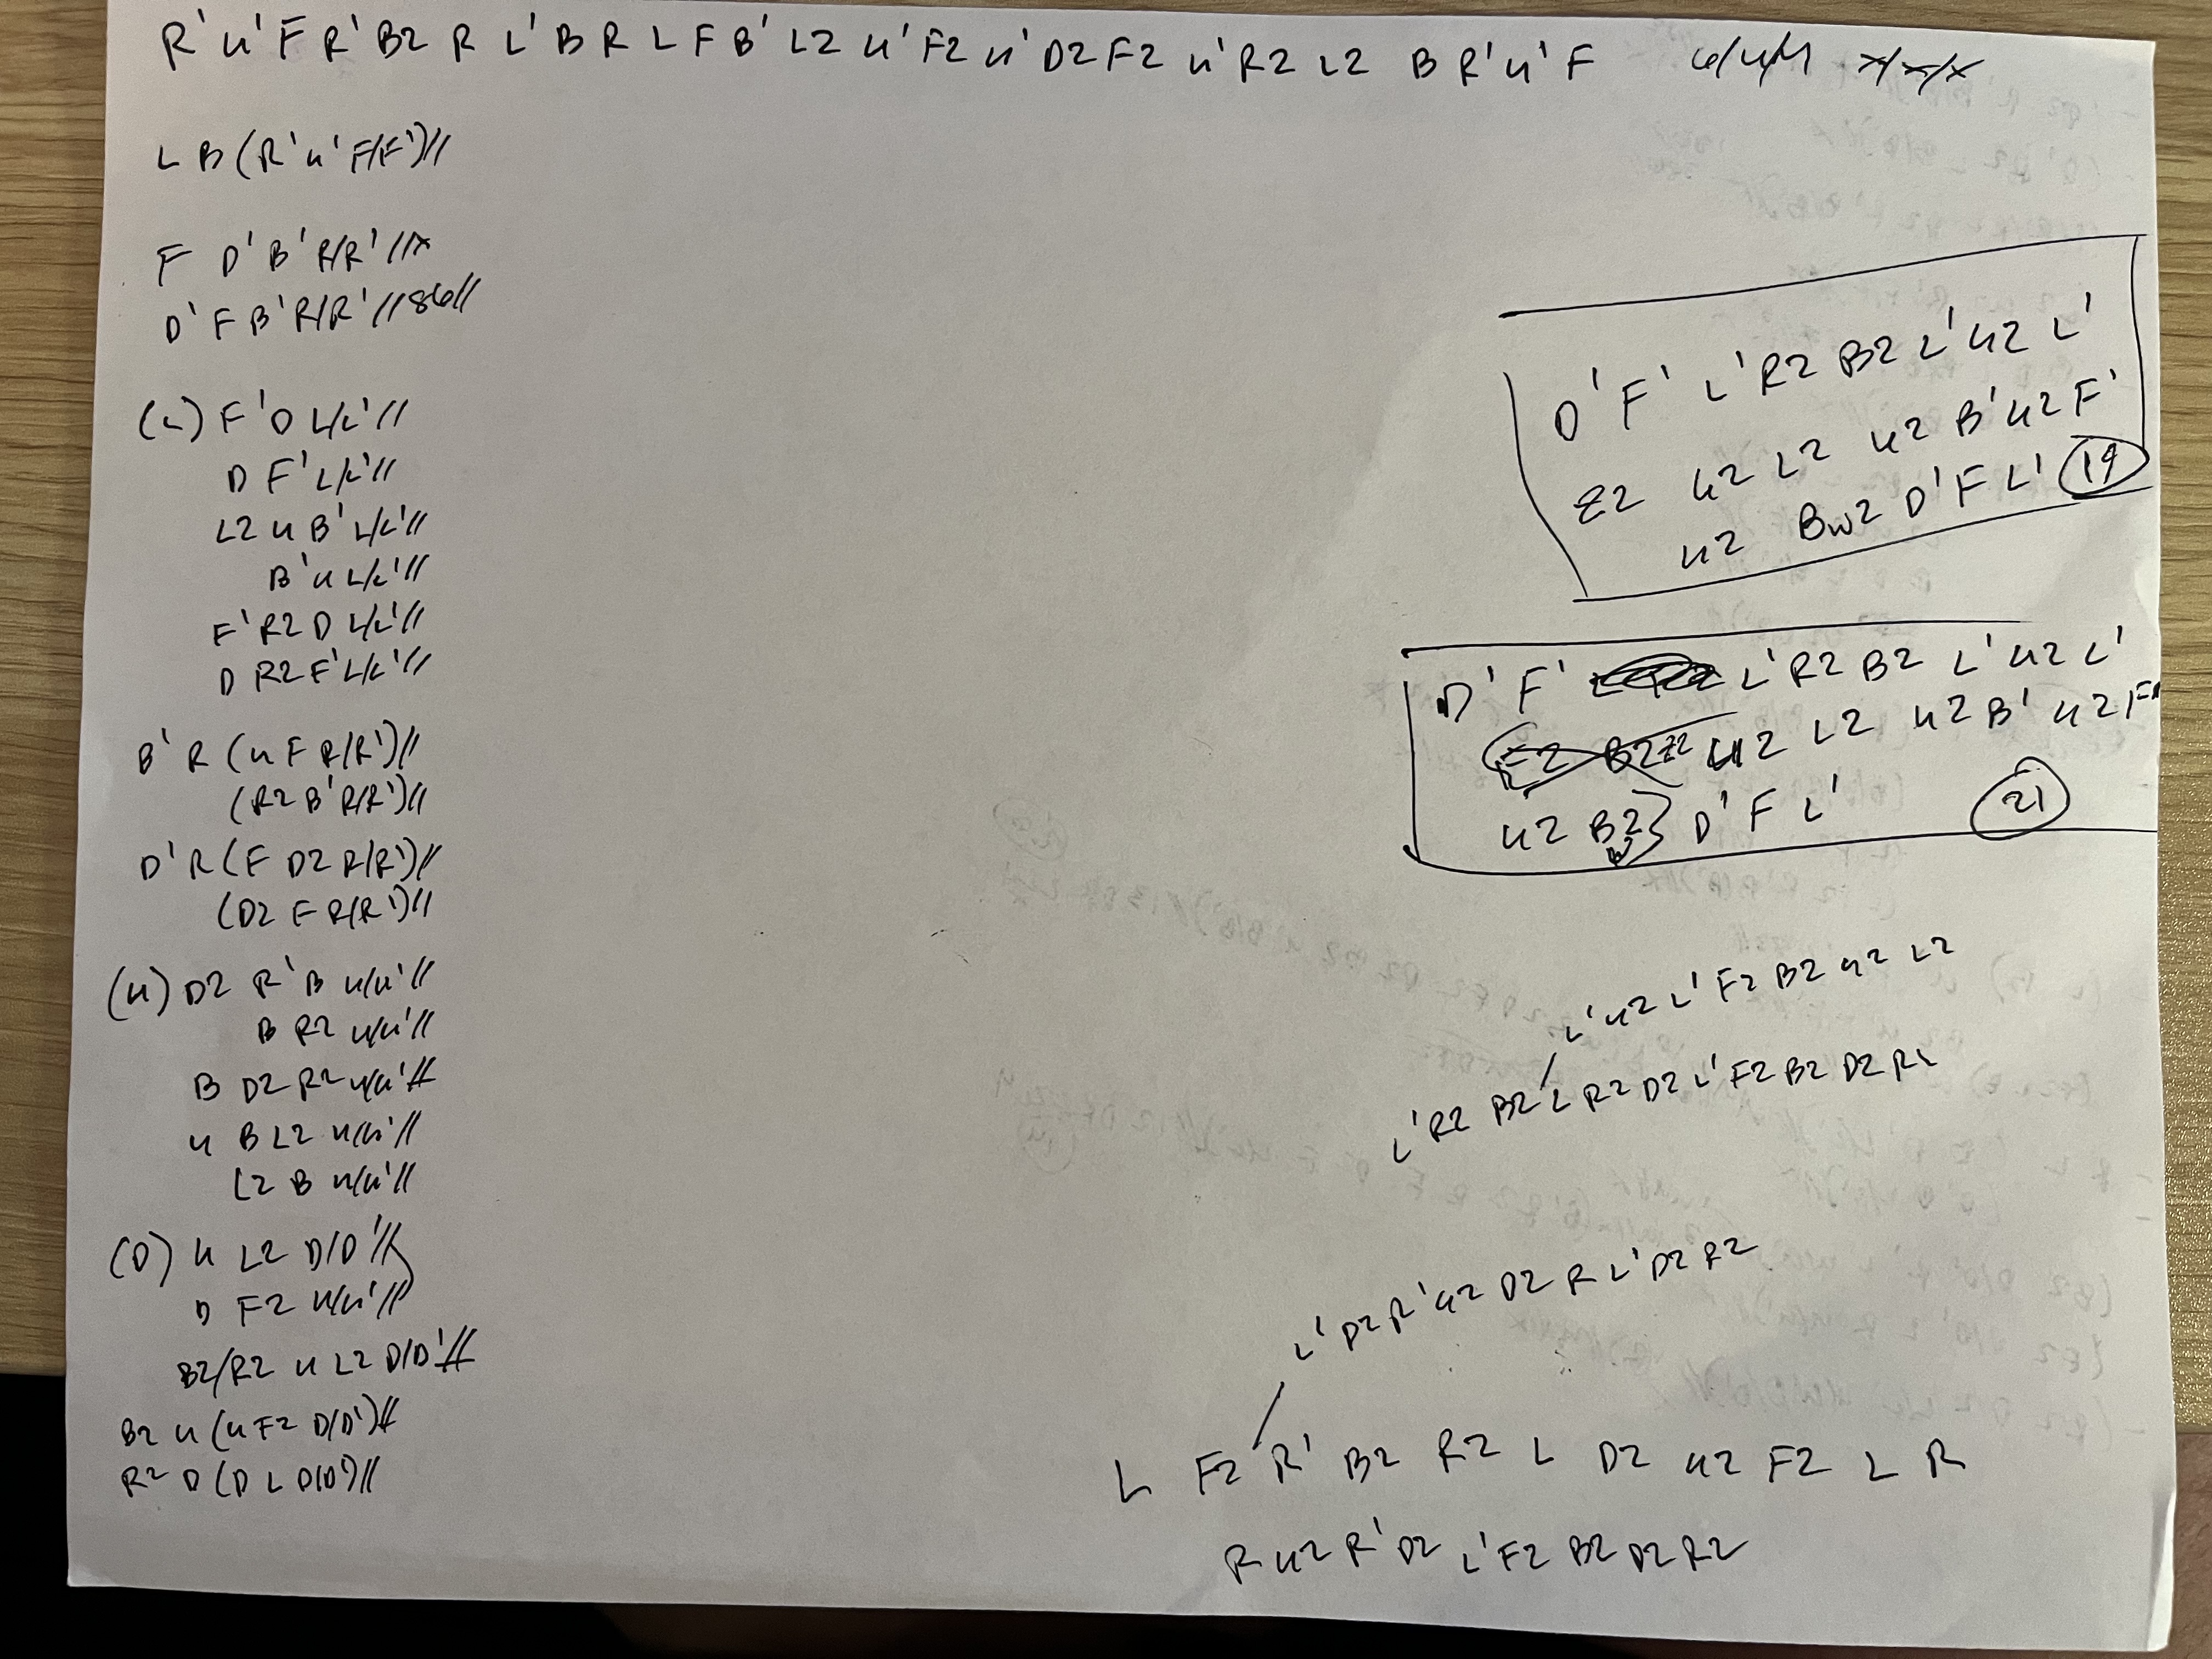 R' U' F R' B2 R L' B R L F B' L2 U' F2 U' D2 F2 U' R2 L2 B R' U' F
L B (R' U' F/F')//
F D' B' R/R' //x
D' F B' R/R' //86//
(L) F' D L/L' //
D F' L/L' //
L2 U B' L/L' //
B' U L/L' //
F' R2 D L/L' //
D R2 F' L/L' //
B' R (U F R/R')//
(R2 B' R/R')//
D' R (F D2 R/R')//
(D2 F R/R')//
(U) D2 R' B U/U' //
B R2 U/U' //
B D2 R2 U/U' //
U B L2 U/U' //
L2 B U/U' //
(D) U L2 D/D' //
D F2 U/U' //
B2/R2 U L2 D/D' //
B2 U (U F2 D/D')//
R2 D (D L D/D')//
D' F' L' R2 B2 L' U2 L'
Z2 U2 L2 U2 B' U2 F'
U2 Bw2 D' F L' 19
D' F' L' R2 B2 L' U2 L'
F2 B2 Z2 U2 L2 U2 B' U2 F'
U2 B2 D' F L' 21
L' U2 L' F2 B2 U2 L2
L' R2 B2 L R2 D2 L' F2 B2 D2 R2
L' D2 R' U2 D2 R L' D2 R2
L F2 R' B2 R2 L D2 U2 F2 L R
R U2 R' D2 L' F2 B2 D2 R2